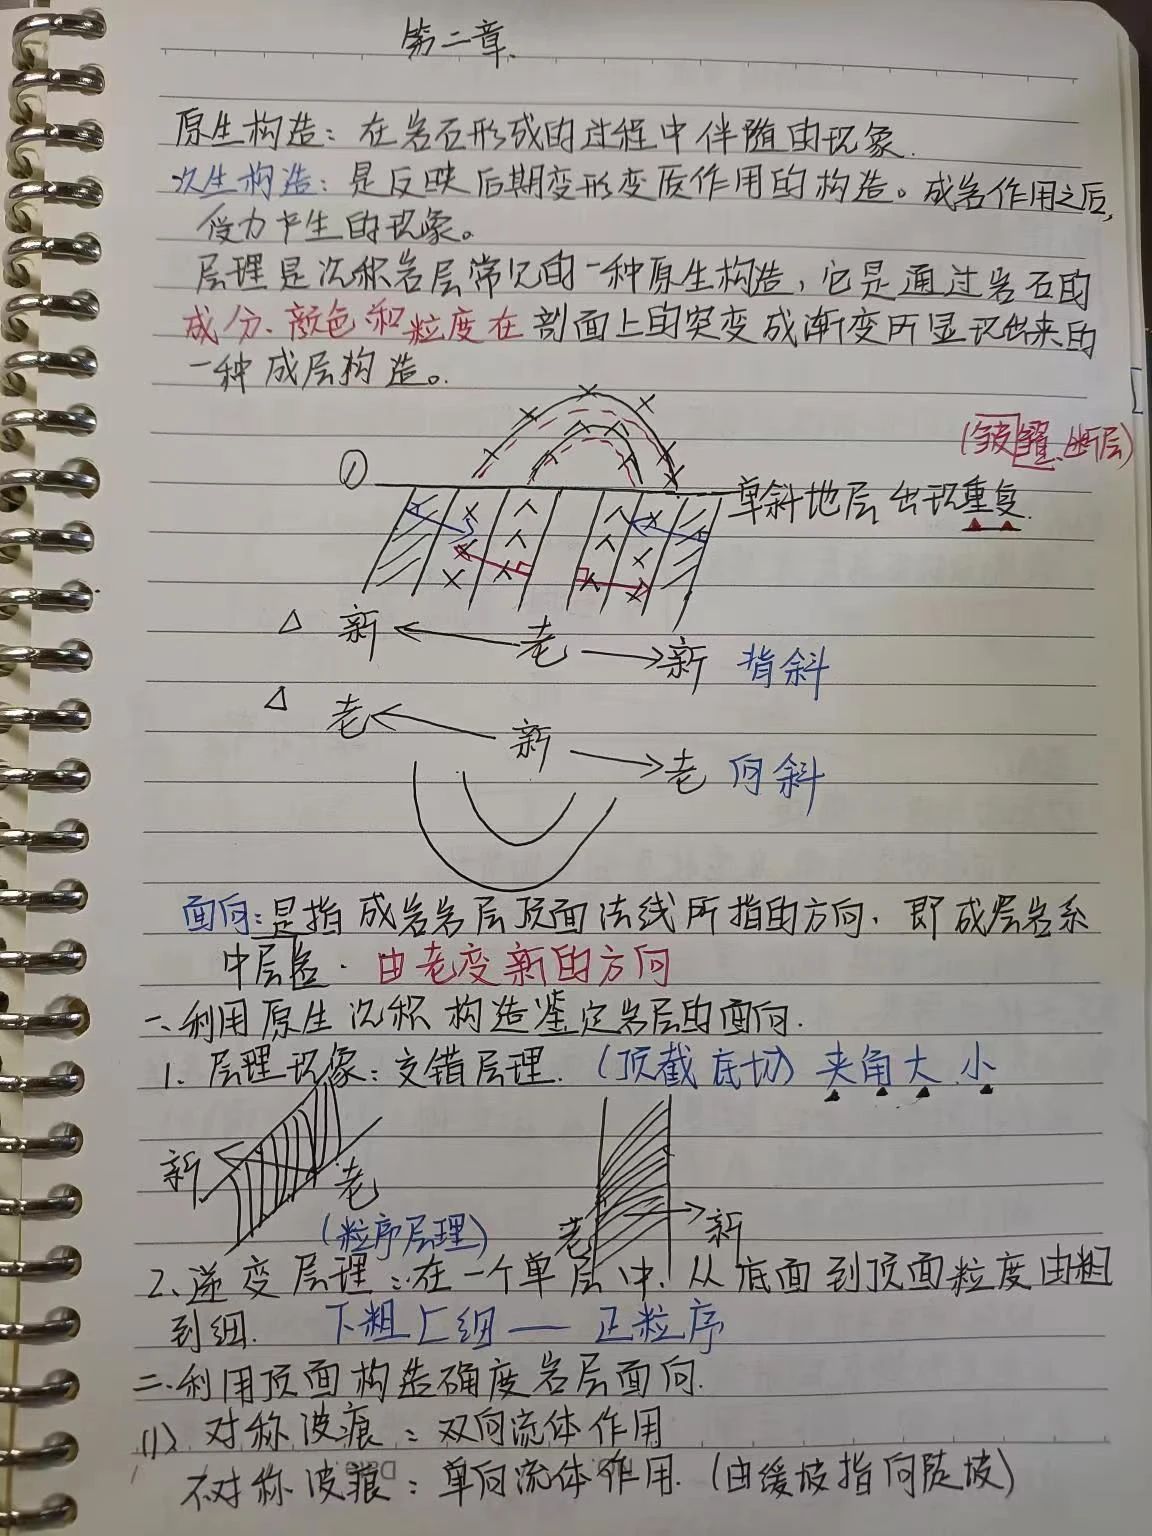 第二章.
原生构造：在岩石形成的过程中伴随的现象.
次生构造：是反映后期变形变质作用的构造。成岩作用之后,
受力产生的现象。
层理是沉积岩层常见的一种原生构造，它是通过岩石的
成分、颜色和粒度在剖面上的突变或渐变所显现出来的
一种成层构造。
(褶皱、断层)
① 单斜地层出现重复.
△ 新 ← 老 → 新 背斜
△ 老 ← 新 → 老 向斜
面向：是指成岩岩层顶面法线所指的方向，即成层岩系
中层 . 由老变新的方向
一、利用原生沉积构造鉴定岩层的面向.
1. 层理现象：交错层理. (顶截底切) 夹角大 小
新 老 老 新
(粒序层理)
2、递变层理：在一个单层中，从底面到顶面粒度由粗
到细. 下粗上细 — 正粒序
二、利用顶面构造确度岩层面向.
(1) 对称波痕：双向流体作用
不对称波痕：单向流体作用. (由缓坡指向陡坡)